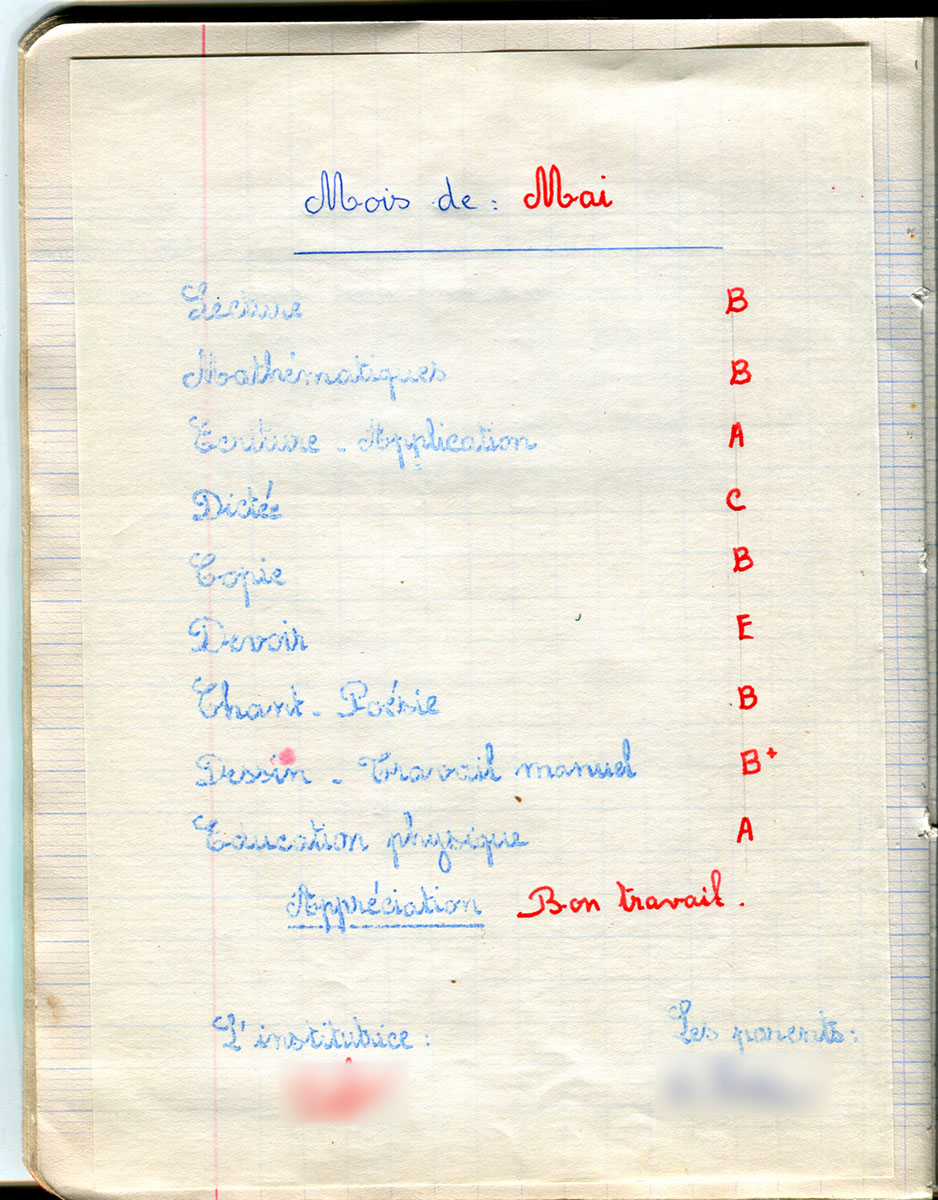 Mois de : Mai
Lecture B
Mathématiques B
Ecriture - Application A
Dictée C
Copie B
Devoir E
Chant - Poésie B
Dessin - Travail manuel B+
Education physique A
Appréciation Bon travail.
L'institutrice : Les parents :